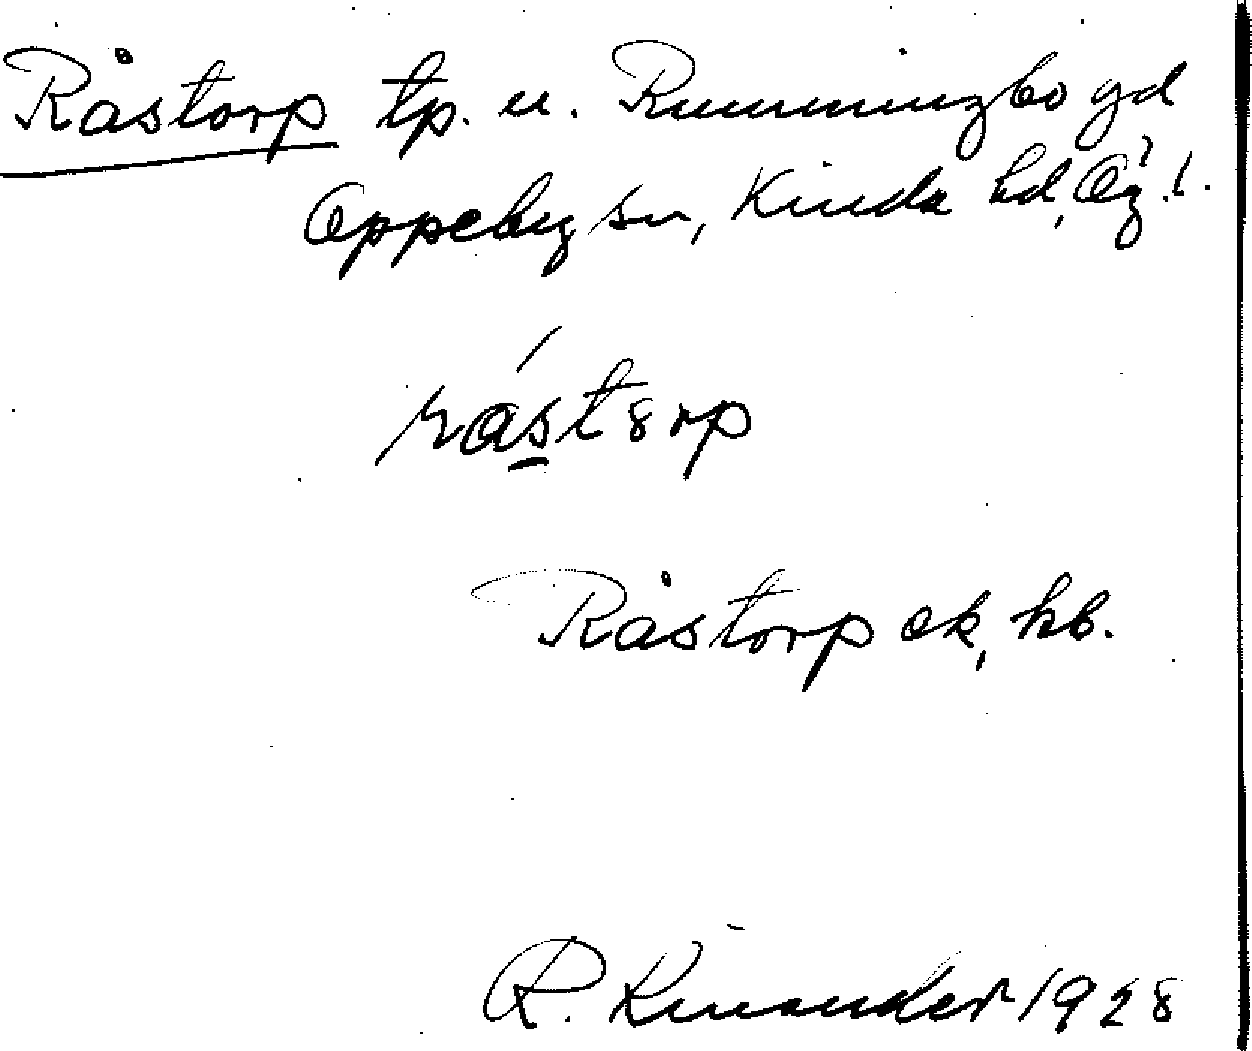 Råstorp tp. u. Rumningbo gd
Oppeby sn, Kinda hd, Ög. l.
råstorp
Råstorp ek, kb.
R. Kinander 1928